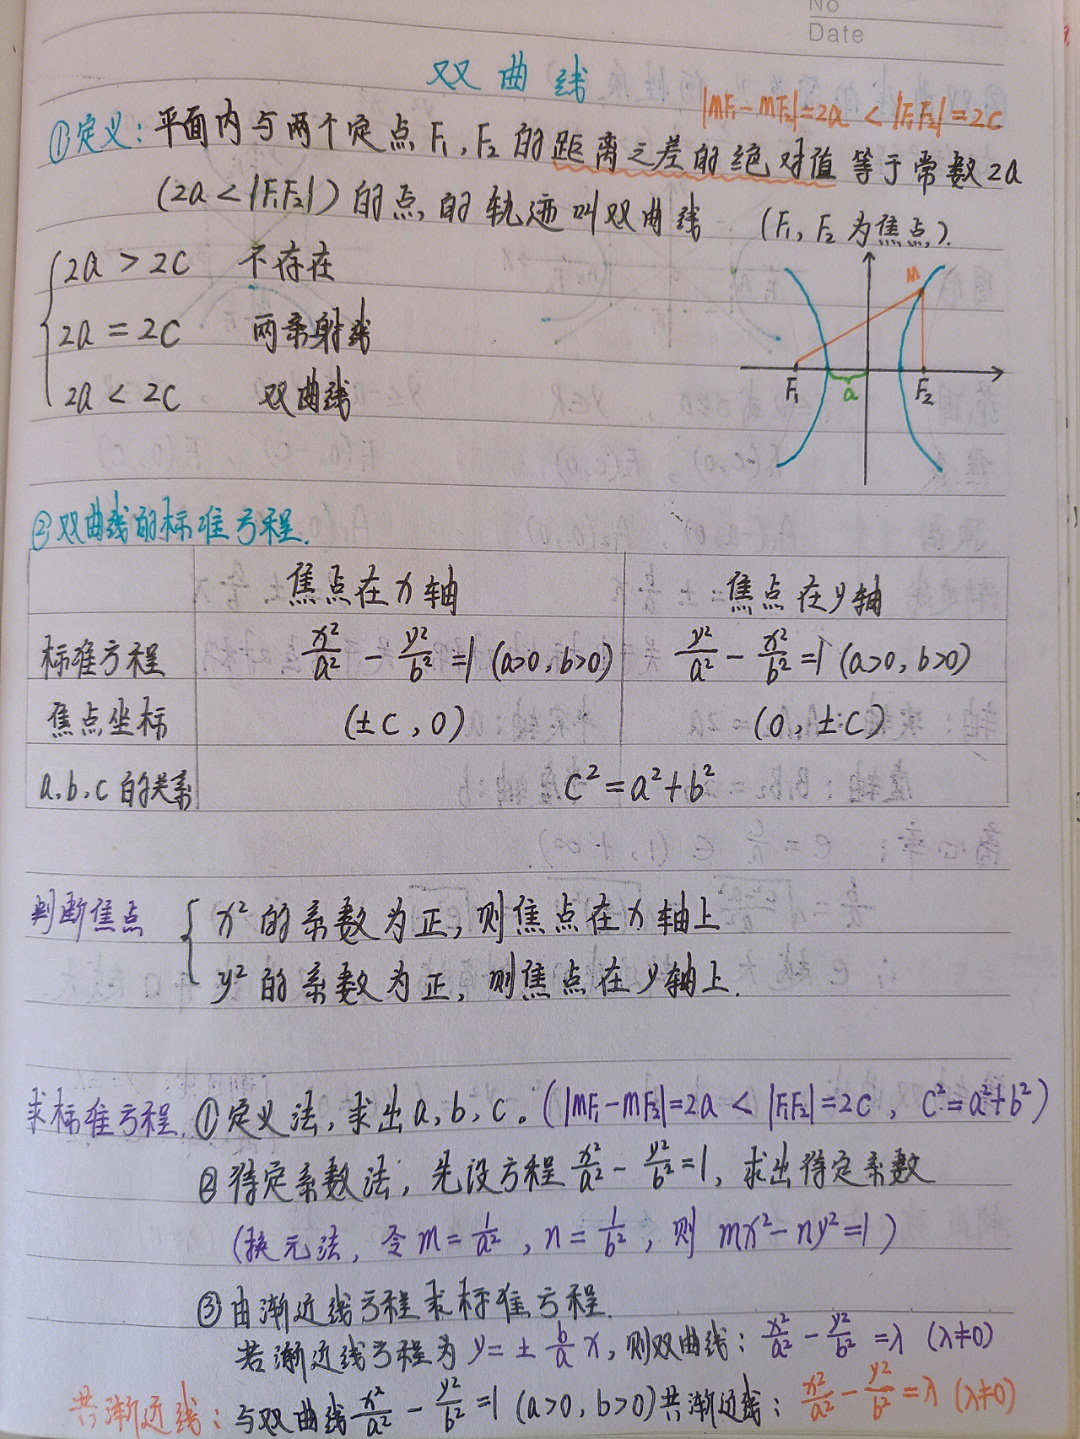 No
Date
双曲线
|MF₁-MF₂|=2a < |F₁F₂|=2c
①定义:平面内与两个定点F₁,F₂的距离之差的绝对值等于常数2a
(2a<|F₁F₂|)的点的轨迹叫双曲线 (F₁,F₂为焦点).
2a > 2c 不存在
2a = 2c 两条射线
2a < 2c 双曲线
M
F₁ a F₂
②双曲线的标准方程.
焦点在x轴 焦点在y轴
标准方程 x²/a² - y²/b² =1 (a>0, b>0) y²/a² - x²/b² =1 (a>0, b>0)
焦点坐标 (±c, 0) (0, ±c)
a,b,c的关系 c²=a²+b²
判断焦点 { x²的系数为正,则焦点在x轴上
y²的系数为正,则焦点在y轴上.
求标准方程. ①定义法,求出a,b,c。(|MF₁-MF₂|=2a < |F₁F₂|=2c, c²=a²+b²)
②待定系数法,先设方程 x²/a² - y²/b² =1, 求出待定系数
(换元法, 令m=1/a², n=1/b², 则 mx²-ny²=1)
③由渐近线方程求标准方程.
若渐近线方程为y=± b/a x, 则双曲线: x²/a² - y²/b² =λ (λ≠0)
共渐近线: 与双曲线 x²/a² - y²/b² =1 (a>0, b>0)共渐近线: x²/a² - y²/b² =λ (λ≠0)